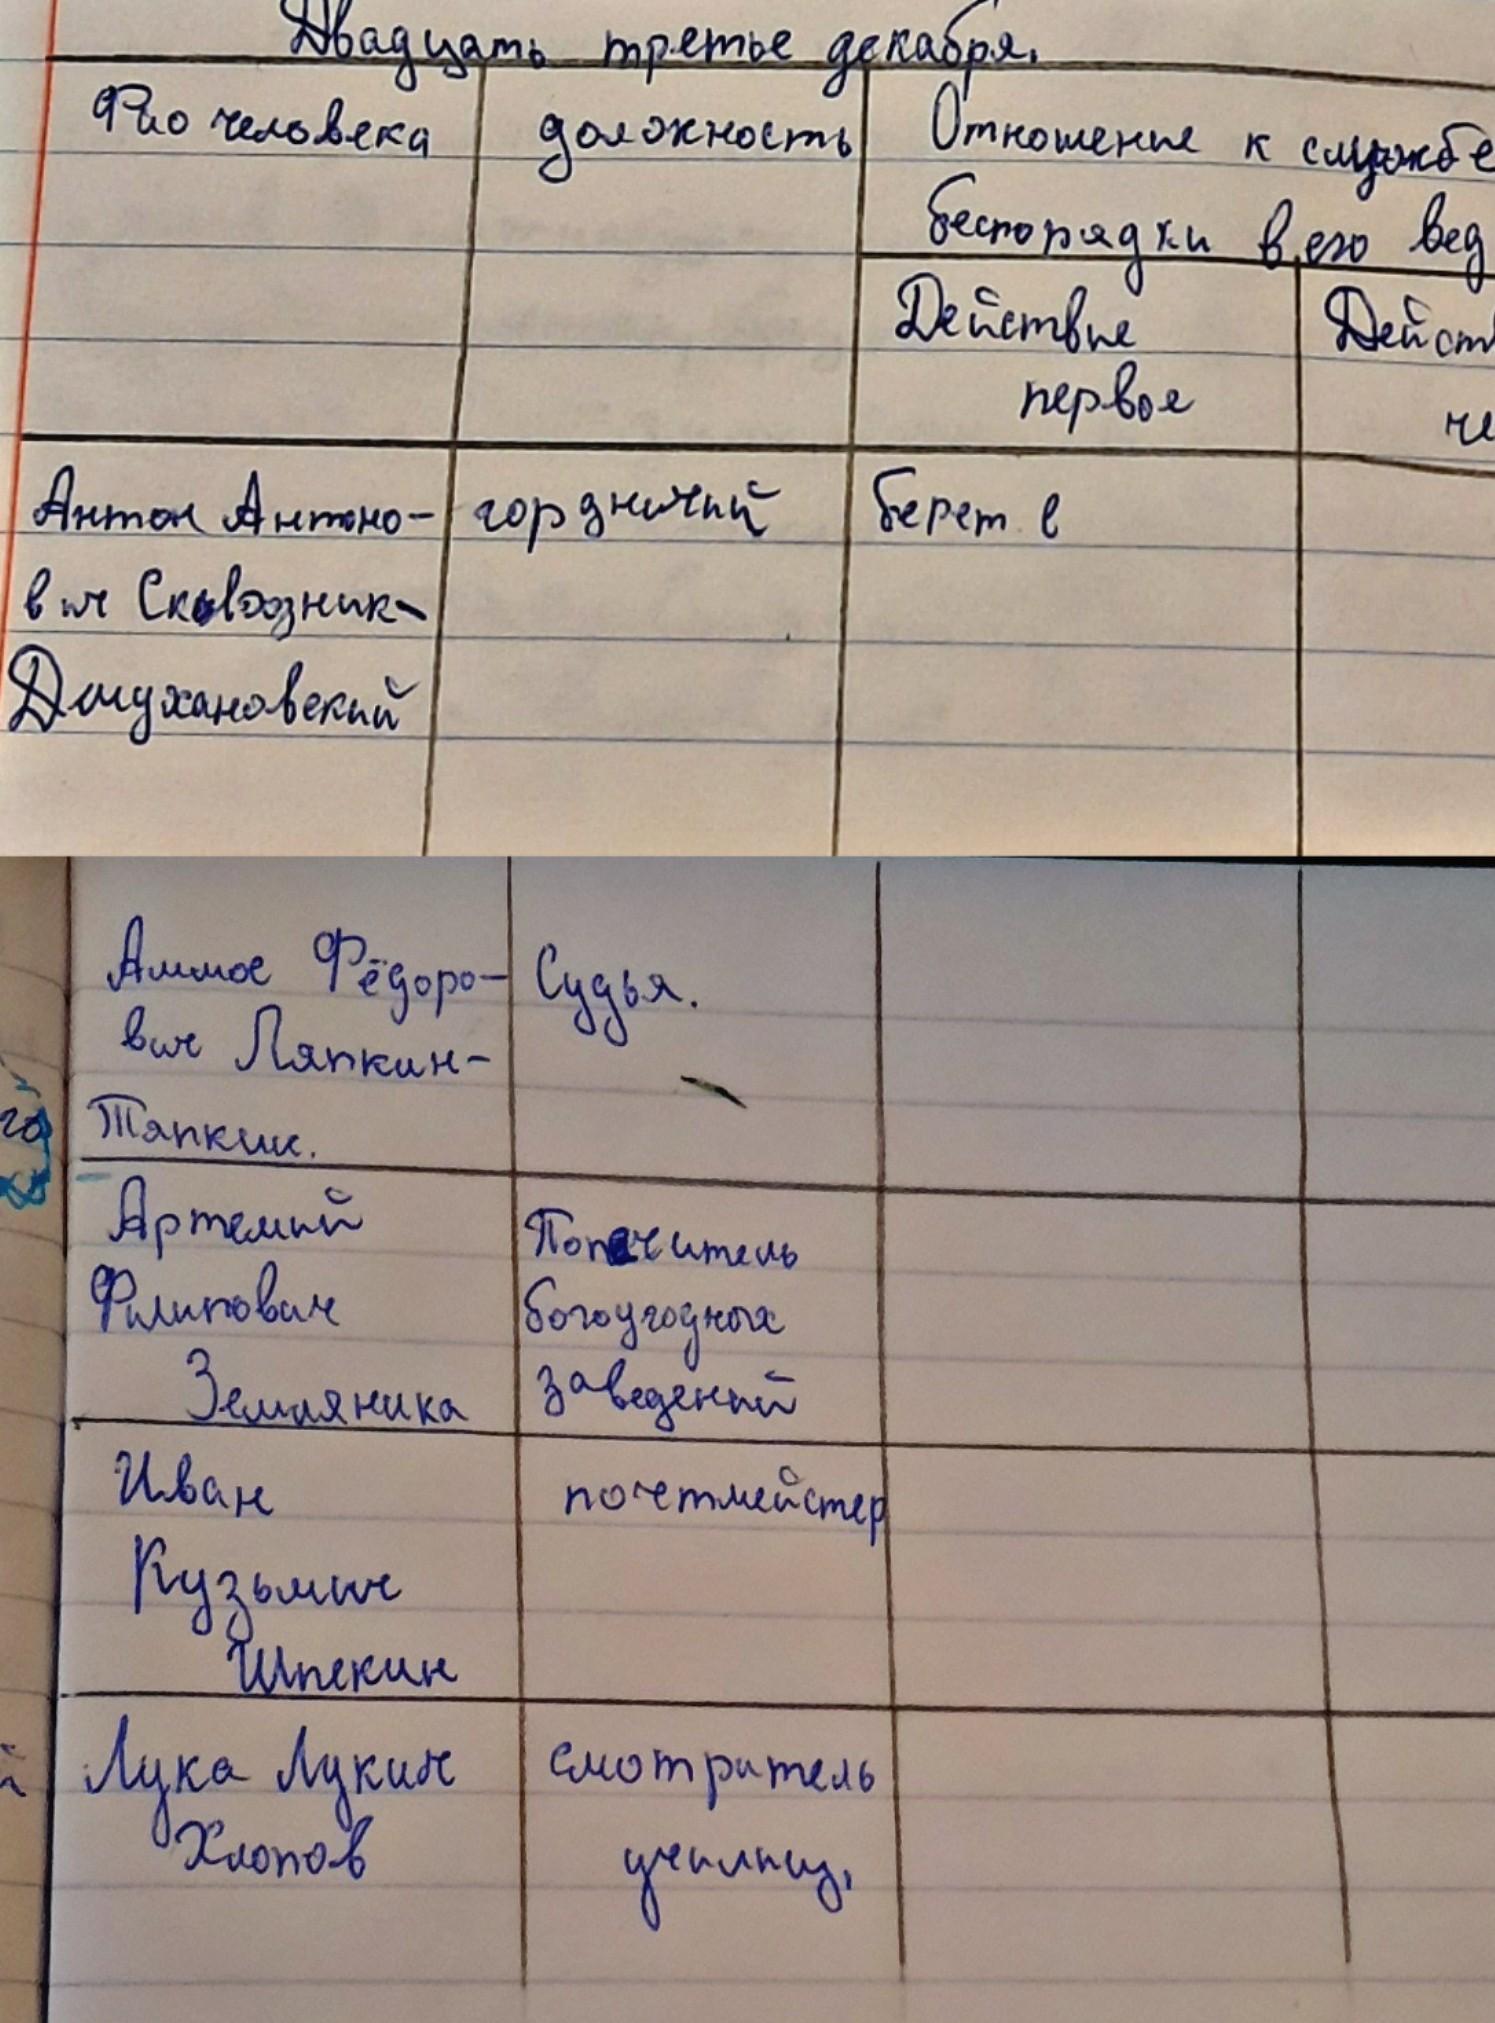 Двадцать третье декабря.
Фио человека должность Отношение к службе
беспорядки в его вед
Действие Дейст
первое че
Антон Антоно- горdничий берет в
вич Сквозник-
Дмухановский
Аммос Фёдоро- Судья.
вич Ляпкин-
Тяпкин.
Артемий Попечитель
Филипович богоугодных
Земляника заведений
Иван почтмейстер
Кузьмич
Шпекин
Лука Лукич смотритель
Хлопов училищ,